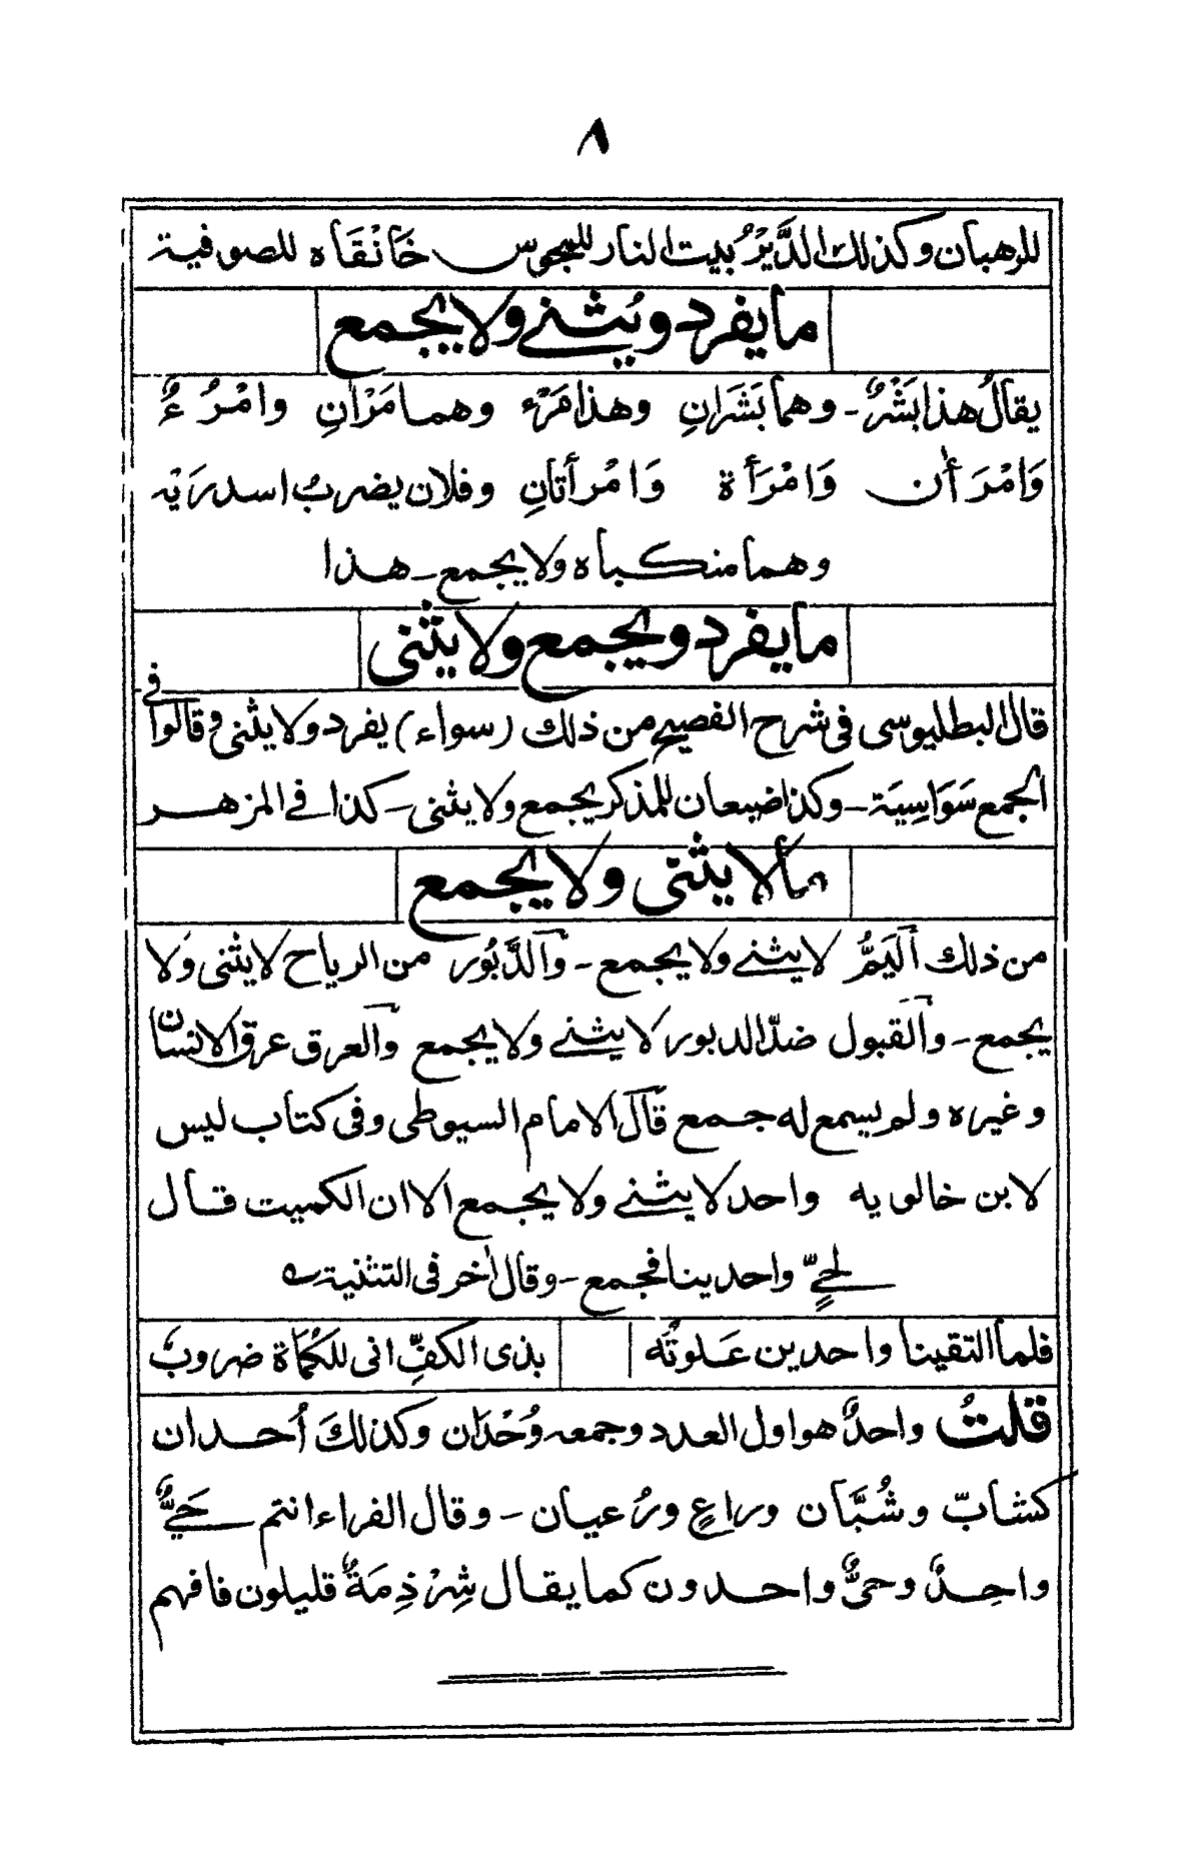 ٨
للرهبان وكذلك الدَّيْرُ بيت النار للمجوس خَانْقَاه للصوفية
ما يفرد ويثنى ولا يجمع
يقالُ هذا بَشَرٌ ـ وهما بَشَرانِ وهذا مَرْء وهما مَرْانِ وامْرُءٌ
وَامْرَأن وَامْرَأة وَامْرأتانِ وفلان يضربُ اسدرَيْه
وهما منكباه ولا يجمع ـ هذا
ما يفرد ويجمع ولا يثنى
قال البطليوسى فى شرح الفصيح من ذلك (سواء) يفرد ولا يثنى وقالوا فى
الجمع سَوَاسِيَة ـ وكذا ضبعان للمذكر يجمع ولا يثنى ـ كذا فى المزهر
ما لا يثنى ولا يجمع
من ذلك اَليَمُّ لا يثنى ولا يجمع ـ والدَّبُور من الرياح لا يثنى ولا
يجمع ـ والقبول ضدّ الدبور لا يثنى ولا يجمع والعرق عرق الانسان
وغيره ولم يسمع له جمع قال الامام السيوطى وفى كتاب ليس
لابن خالويه واحد لا يثنى ولا يجمع الا ان الكميت قال
لحىٍّ واحدينا فجمع ـ وقال أخر فى التثنية
فلما التقينا واحدين عَلوتُه بذى الكفِّ انى للكُمَاة ضروبٌ
قلتُ واحدٌ هو اول العدد وجمعه وُحْدَان وكذلكَ اُحدان
كشابّ وشُبَّان وراعٍ ورُعيان ـ وقال الفراء انتم حَىٌّ
واحِدٌ وحىٌّ واحدون كما يقال شِرْذِمَةٌ قليلون فافهم